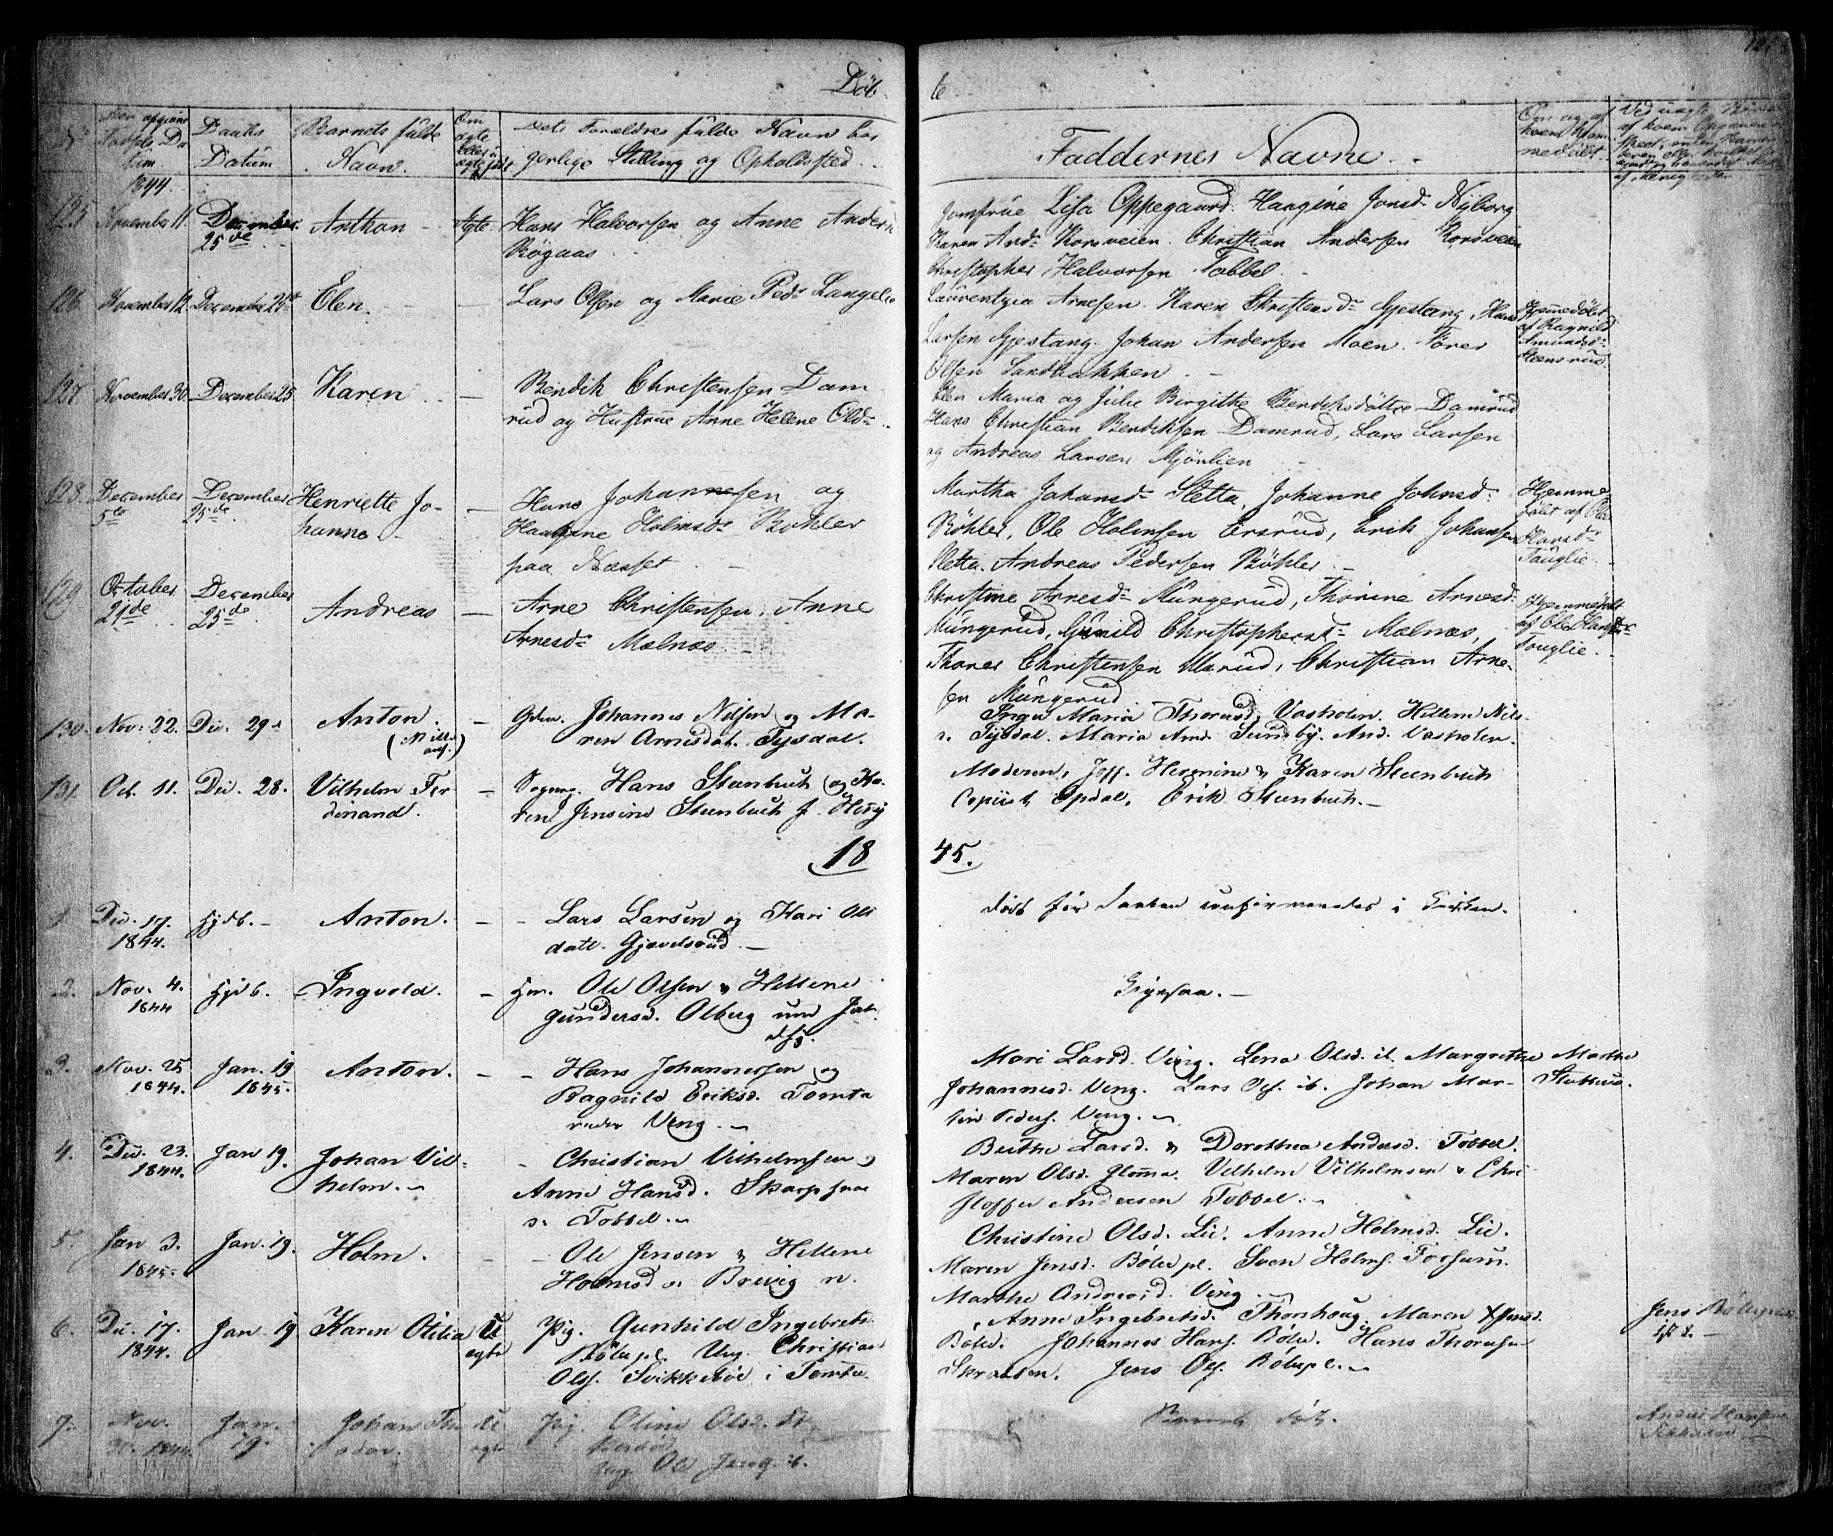 Döb
te
Daabs
Datum
Barnets fulde
Navn.
Om
ægte
eller u
ægte født
Dets Forældres fulde Navn bor
gerlige Stilling og Opholdssted.
Faddernes Navne.
1844.
125 November 11. December 25de Anthon Ægte Hans Halvorsen og Anne Anders
Røgaas
Jomfrue Lisa Oppegaard. Haagine Jonsd. Nyborg
Karen Andd Korsveien. Christian Andersen Korsveien
Christopher Halvorsen Tobbel
126 November 12. December 25de Elen. Lars Olsen og Marie Pedd Langelie
Laurentzia Arnesen. Karen Christensd Gjestang, Hans
Larsen Gjestang. Johan Andersen Moen. Torer
Olsen Sandbakken
Hjemmedøbt
af Ragnild
Amundsd
Steensrud
127 November 30. December 25 Karen Bendik Christensen Dam
rud og Hustrue Anne Helene Olsd
Elen Maria og Julie Birgithe Bendiksdøttre Damrud
Hans Christian Bendiksen Damrud, Lars Larsen
og Andreas Larsen Mjönlien
128 December 5te December 25de Henriette Jo-
hanne
Hans Johannesen og
Haagine Holmsd Bøhler
paa Næsset
Martha Johansd Sletta, Johanne Johnsd
Bøhler, Ole Holmsen Ersrud, Erik Johansen
Sletta. Andreas Pedersen Bøhler
Hjemme-
døbt af Ole
Hansd
Fauglie.
129 October 21de December 25de Andreas Arne Christensen, Anne
Arnesd Mælnæs
Christine Arnesd Mungerud, Thorine Arnesd
Mungerud, Gunild Christophersd Mælnæs,
Thorer Christensen Ulerud, Christian Arne-
sen Mungerud
Hjemmedøbt
af Ole Hans
Fouglie.
130. Nov. 22. Dec. 29. Anton. Gdm. Johannes Nilsen og Ma-
ren Arnesdat. Tysdal.
Inger Maria Thoresd. Vasholen. Hellene Nils-
d. Tysdal. Maria And. Sundby. And. Vasholen.
131. Oct. 11. Dec. 28. Vilhelm Fer
dinand.
Sogneg. Hans Steenbuch og Ka-
ren Jensine Steenbuch f. Høeg
Moderen, Joff. Hermine & Karen Steenbuch
Copiist Opdal, Erik Steenbuch.
18
45.
1 Dec. 17.
1844. Hjdb. Anton. Lars Larsen og Kari Ols
datt. Gjevelsrud.
død før Daaben confirmeredes i Kirken.
2. Nov. 4.
1844 Hjdb. Ingvold. Hm. Ole Olsen & Hellene
Gundersd. Olberg
Ligesaa.
3. Nov. 25
1844. Jan. 19
1845. Anton. Hans Johannessen og
Ragnild Eriksd. Tomta
under Ving.
Mari Larsd. Ving. Lena Olsd. ib. Margrethe
Johannesd. Ving. Lars Ols. ib. Johan Mar-
tin Peders. Ving.
Marthe
4. Dec. 23.
1844. Jan 19. Johan Vil-
helm.
Christian Vilhelmsen &
Anne Hansd. Skarpsnoe
Tobbel.
Berthe Larsd. & Dorothea Andersd. Tobbel.
Maren Olsd. Glomma. Vilhelm Vilhelmsen & Chri
stoffer Andersen Tobbel.
5. Jan 3.
1845. Jan. 19. Holm. Ole Jensen & Hellene
Holmsd Brevig
Christine Olsd. Lie. Anne Holmsd. Lie.
Maren Jensd. Bøler pl. Sven Holms. Torsum.
Marthe Andreasd. Ving.
6. Dec. 17.
1844. Jan. 19. Karen Otilia U
ægte Pig. Gunhild Ingebrets
Bølerpl. Ung. Christian
Ols. Svikkebøe i Tomta.
Anne Ingebretsd. Thonhaug. Maren Jensd.
Bøler. Johannes Hans. Bøler. Hans Thoresen
Skraasen. Jens Ols. Bølerpl.
Jens Bølerpl.
7. Nov.
30. 1844. Jan.
19. Johan The
odor. U
ægte Pig. Oline Olsd.
Ung Ole
Anders Hansen